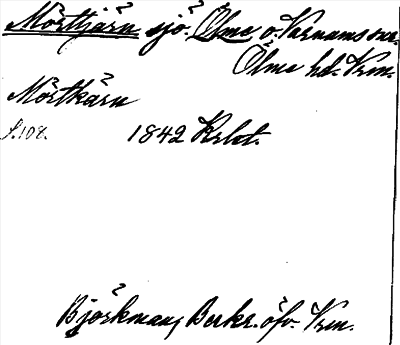 Mörttjärn sjö. Ölme o. Varnums snr.
Ölme hd. Vrm.
Mörtkärn
S. 108. 1842 Krlot.
Björkman, Beskr. öfv. Vrm.